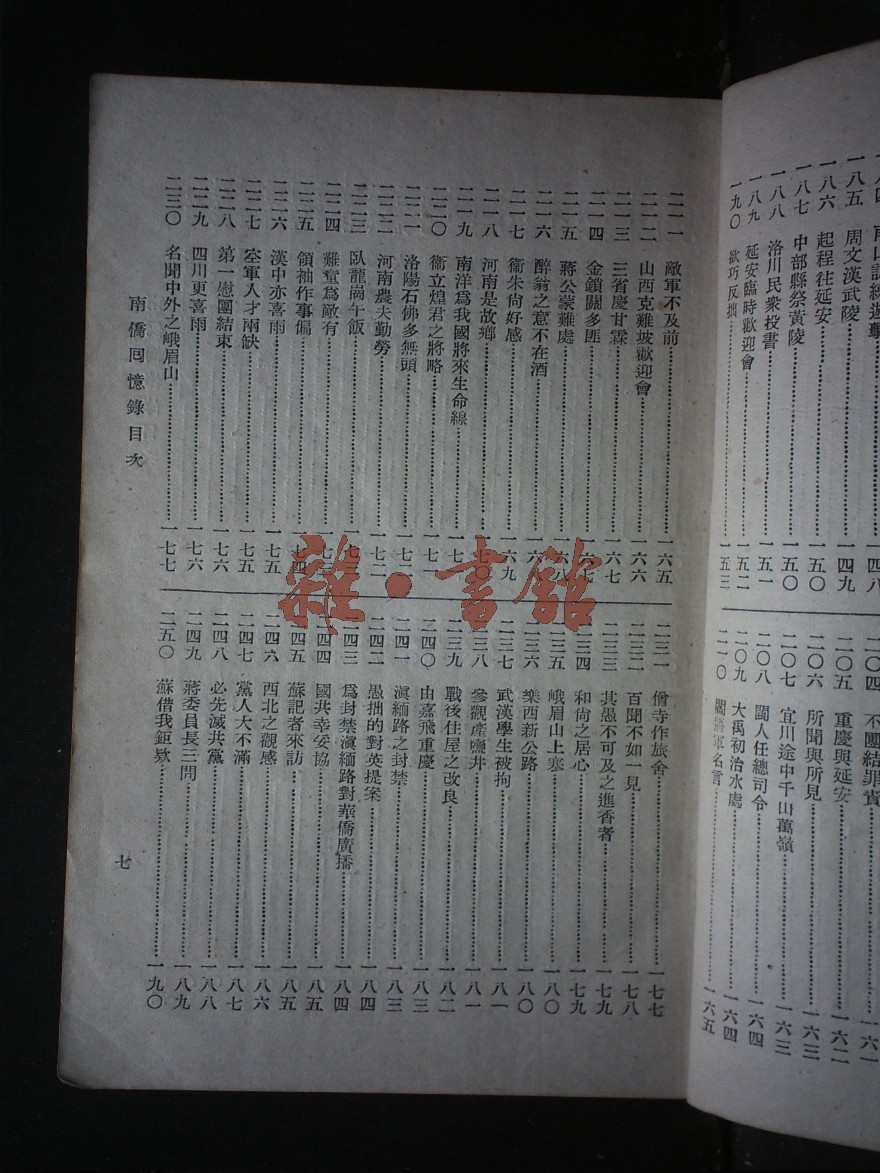 一八五 周文漢武陵……一四九
一八六 起程往延安……一五〇
一八七 中部縣祭黃陵……一五〇
一八八 洛川民衆投書……一五一
一八九 延安臨時歡迎會……一五二
一九〇 欲巧反拙……一五三
二〇四 不團結罪責……一六一
二〇五 重慶與延安……一六二
二〇六 所聞與所見……一六三
二〇七 宜川途中千山萬嶺……一六三
二〇八 閩人任總司令……一六四
二〇九 大禹初治水處……一六四
二一〇 閻將軍名言……一六五
二一一 敵軍不及前……一六五
二一二 山西克難坡歡迎會……一六六
二一三 三省慶甘霖……一六七
二一四 金鎖關多匪……一六七
二一五 蔣公蒙難處……一六八
二一六 醉翁之意不在酒……
二一七 衞朱尚好感……一六九
二一八 河南是故鄉……一七〇
二一九 南洋爲我國將來生命線……
二二〇 衞立煌君之將略……
二二一 洛陽石佛多無頭……
二二二 河南農夫勤勞……一七二
二二三 臥龍崗午飯……
二二四 難童爲敵有……一七三
二二五 領袖作事偏……一七四
二二六 漢中亦喜雨……一七五
二二七 空軍人才兩缺……一七五
二二八 第一慰團結束……一七六
二二九 四川更喜雨……一七六
二三〇 名聞中外之峨眉山……一七七
二三一 僧寺作旅舍……一七七
二三二 百聞不如一見……一七八
二三三 其愚不可及之進香者……一七九
二三四 和尚之居心……一七九
二三五 峨眉山上寒……一八〇
二三六 樂西新公路……一八〇
二三七 武漢學生被拘……一八一
二三八 參觀產鹽井……一八一
二三九 戰後住屋之改良……一八二
二四〇 由嘉飛重慶……一八三
二四一 滇緬路之封禁……一八三
二四二 愚拙的對英提案……一八四
二四三 爲封禁滇緬路對華僑廣播……一八四
二四四 國共幸妥協……一八五
二四五 蘇記者來訪……一八五
二四六 西北之觀感……一八六
二四七 黨人大不滿……一八七
二四八 必先滅共黨……一八八
二四九 蔣委員長三問……一八九
二五〇 蘇借我鉅欵……一九〇
南僑囘憶錄目次
七
雜·書館